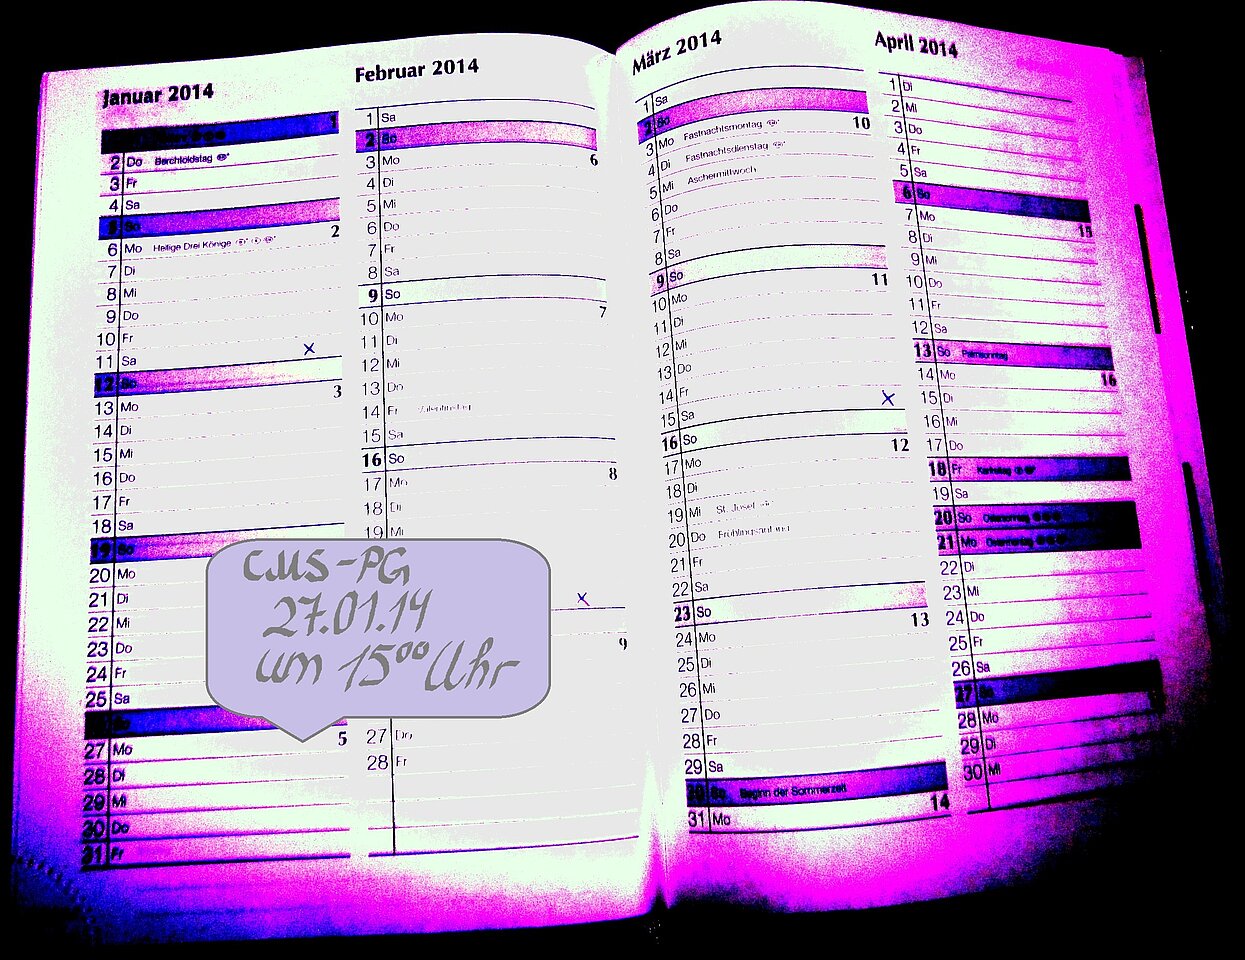 Januar 2014
1
2 Do Berchtoldstag
3 Fr
4 Sa
5 So
6 Mo Heilige Drei Könige 2
7 Di
8 Mi
9 Do
10 Fr
11 Sa x
12 So
13 Mo 3
14 Di
15 Mi
16 Do
17 Fr
18 Sa
19 So
20 Mo
21 Di
22 Mi
23 Do
24 Fr
25 Sa
So
27 Mo 5
28 Di
29 Mi
30 Do
31 Fr
CMS-PG
27.01.14
um 15⁰⁰ Uhr
Februar 2014
1 Sa
2 So
3 Mo 6
4 Di
5 Mi
6 Do
7 Fr
8 Sa
9 So
10 Mo 7
11 Di
12 Mi
13 Do
14 Fr Valentinstag
15 Sa
16 So
17 Mo 8
18 Di
19 Mi
x
9
27 Do
28 Fr
März 2014
1 Sa
2 So
3 Mo Fastnachtsmontag 10
4 Di Fastnachtsdienstag
5 Mi Aschermittwoch
6 Do
7 Fr
8 Sa
9 So
10 Mo 11
11 Di
12 Mi
13 Do
14 Fr
15 Sa x
16 So
17 Mo 12
18 Di
19 Mi St. Josef
20 Do Frühlingsanfang
21 Fr
22 Sa
23 So
24 Mo 13
25 Di
26 Mi
27 Do
28 Fr
29 Sa
30 So Beginn der Sommerzeit
31 Mo 14
April 2014
1 Di
2 Mi
3 Do
4 Fr
5 Sa
6 So
7 Mo 15
8 Di
9 Mi
10 Do
11 Fr
12 Sa
13 So Palmsonntag
14 Mo 16
15 Di
16 Mi
17 Do
18 Fr Karfreitag
19 Sa
20 So Ostersonntag
21 Mo Ostermontag
22 Di
23 Mi
24 Do
25 Fr
26 Sa
27 So
28 Mo
29 Di
30 Mi